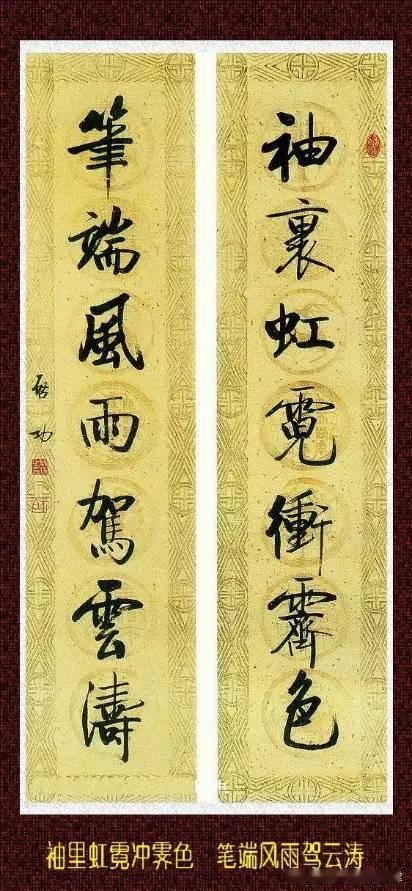 袖裏虹霓衝霽色
筆端風雨駕雲濤
啓功
袖里虹霓冲霁色 笔端风雨驾云涛